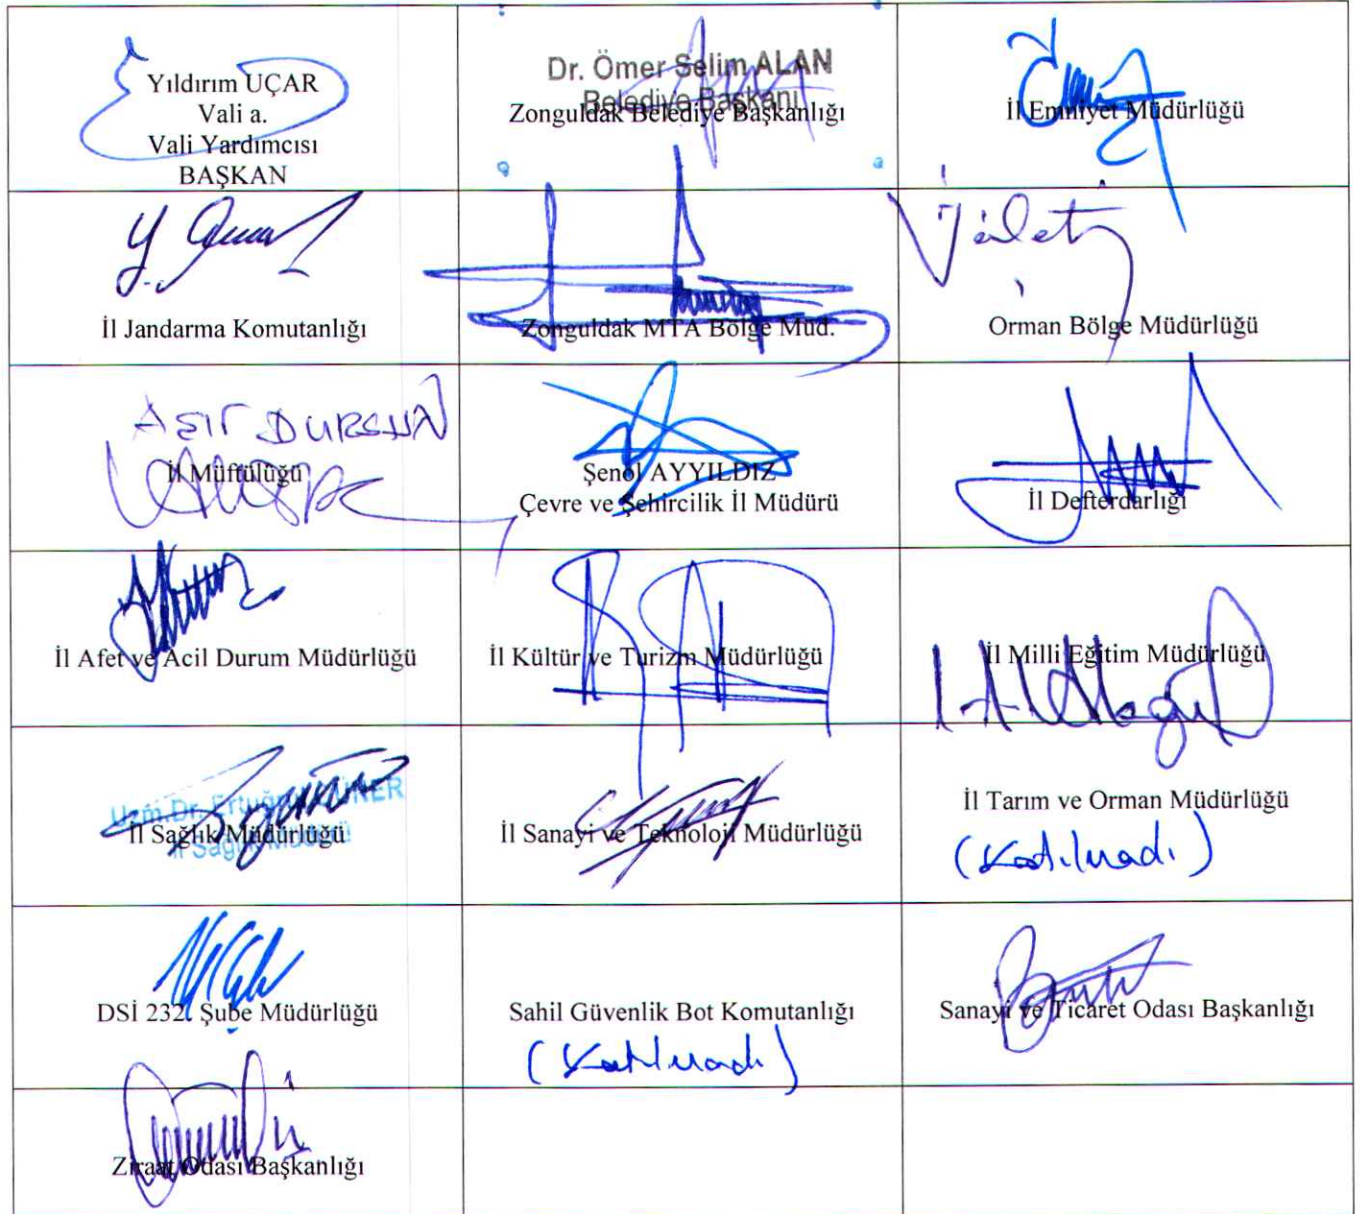 Yıldırım UÇAR
Vali a.
Vali Yardımcısı
BAŞKAN
Dr. Ömer Selim ALAN
Belediye Başkanı
Zonguldak Belediye Başkanlığı
İl Emniyet Müdürlüğü
İl Jandarma Komutanlığı
Zonguldak MTA Bölge Müd.
Orman Bölge Müdürlüğü
ASIF DURSUN
İl Müftülüğü
Şenol AYYILDIZ
Çevre ve Şehircilik İl Müdürü
İl Defterdarlığı
İl Afet ve Acil Durum Müdürlüğü
İl Kültür ve Turizm Müdürlüğü
İl Milli Eğitim Müdürlüğü
Uzm.Dr.
İl Sağlık Müdürlüğü
İl Sanayi ve Teknoloji Müdürlüğü
İl Tarım ve Orman Müdürlüğü
(Katılmadı)
DSİ 232. Şube Müdürlüğü
Sahil Güvenlik Bot Komutanlığı
(Katılmadı)
Sanayi ve Ticaret Odası Başkanlığı
Ziraat Odası Başkanlığı